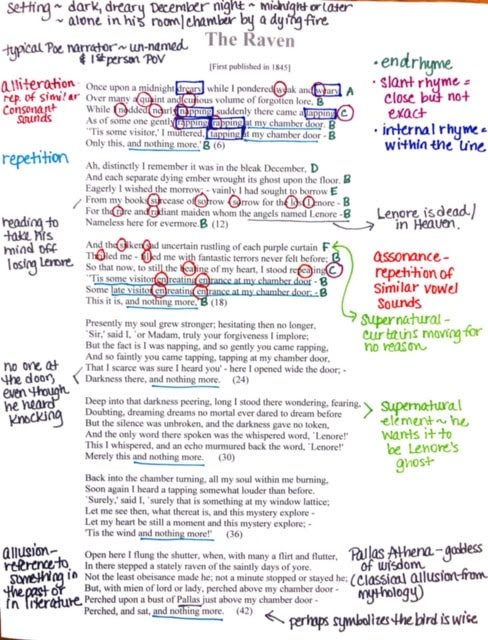 setting ~ dark, dreary December night ~ midnight or later
~ alone in his room/chamber by a dying fire
typical Poe narrator ~ un-named
& 1st person POV
The Raven
[First published in 1845]
alliteration-
rep. of similar
consonant
sounds
Once upon a midnight dreary, while I pondered weak and weary, A
Over many a quaint and curious volume of forgotten lore, B
While I nodded, nearly napping, suddenly there came a tapping, C
As of some one gently rapping, rapping at my chamber door. B
"Tis some visitor,' I muttered, 'tapping at my chamber door - B
Only this, and nothing more.' B (6)
• end rhyme
• slant rhyme =
close but not
exact
• internal rhyme =
within the line
repetition
Ah, distinctly I remember it was in the bleak December, D
And each separate dying ember wrought its ghost upon the floor. B
Eagerly I wished the morrow; - vainly I had sought to borrow E
From my books surcease of sorrow - sorrow for the lost Lenore - B
For the rare and radiant maiden whom the angels named Lenore - B
Nameless here for evermore. B (12)
reading to
take his
mind off
losing Lenore
Lenore is dead/
in Heaven.
And the silken sad uncertain rustling of each purple curtain F
Thrilled me - filled me with fantastic terrors never felt before; B
So that now, to still the beating of my heart, I stood repeating C
"Tis some visitor entreating entrance at my chamber door - B
Some late visitor entreating entrance at my chamber door; - B
This it is, and nothing more,' B (18)
assonance-
repetition of
similar vowel
sounds
supernatural-
curtains moving for
no reason
Presently my soul grew stronger; hesitating then no longer,
'Sir,' said I, 'or Madam, truly your forgiveness I implore;
But the fact is I was napping, and so gently you came rapping,
And so faintly you came tapping, tapping at my chamber door,
That I scarce was sure I heard you' - here I opened wide the door; -
Darkness there, and nothing more. (24)
no one at
the door,
even though
he heard
knocking
Deep into that darkness peering, long I stood there wondering, fearing,
Doubting, dreaming dreams no mortal ever dared to dream before
But the silence was unbroken, and the darkness gave no token,
And the only word there spoken was the whispered word, 'Lenore!'
This I whispered, and an echo murmured back the word, 'Lenore!'
Merely this and nothing more. (30)
supernatural
element ~ he
wants it to
be Lenore's
ghost
Back into the chamber turning, all my soul within me burning,
Soon again I heard a tapping somewhat louder than before.
'Surely,' said I, 'surely that is something at my window lattice;
Let me see then, what thereat is, and this mystery explore -
Let my heart be still a moment and this mystery explore; -
'Tis the wind and nothing more!' (36)
allusion-
reference to
something in
the past or
in literature
Open here I flung the shutter, when, with many a flirt and flutter,
In there stepped a stately raven of the saintly days of yore.
Not the least obeisance made he; not a minute stopped or stayed he;
But, with mien of lord or lady, perched above my chamber door -
Perched upon a bust of Pallas just above my chamber door -
Perched, and sat, and nothing more. (42)
Pallas Athena - goddess
of wisdom
(classical allusion-from
mythology)
perhaps symbolizes the bird is wise